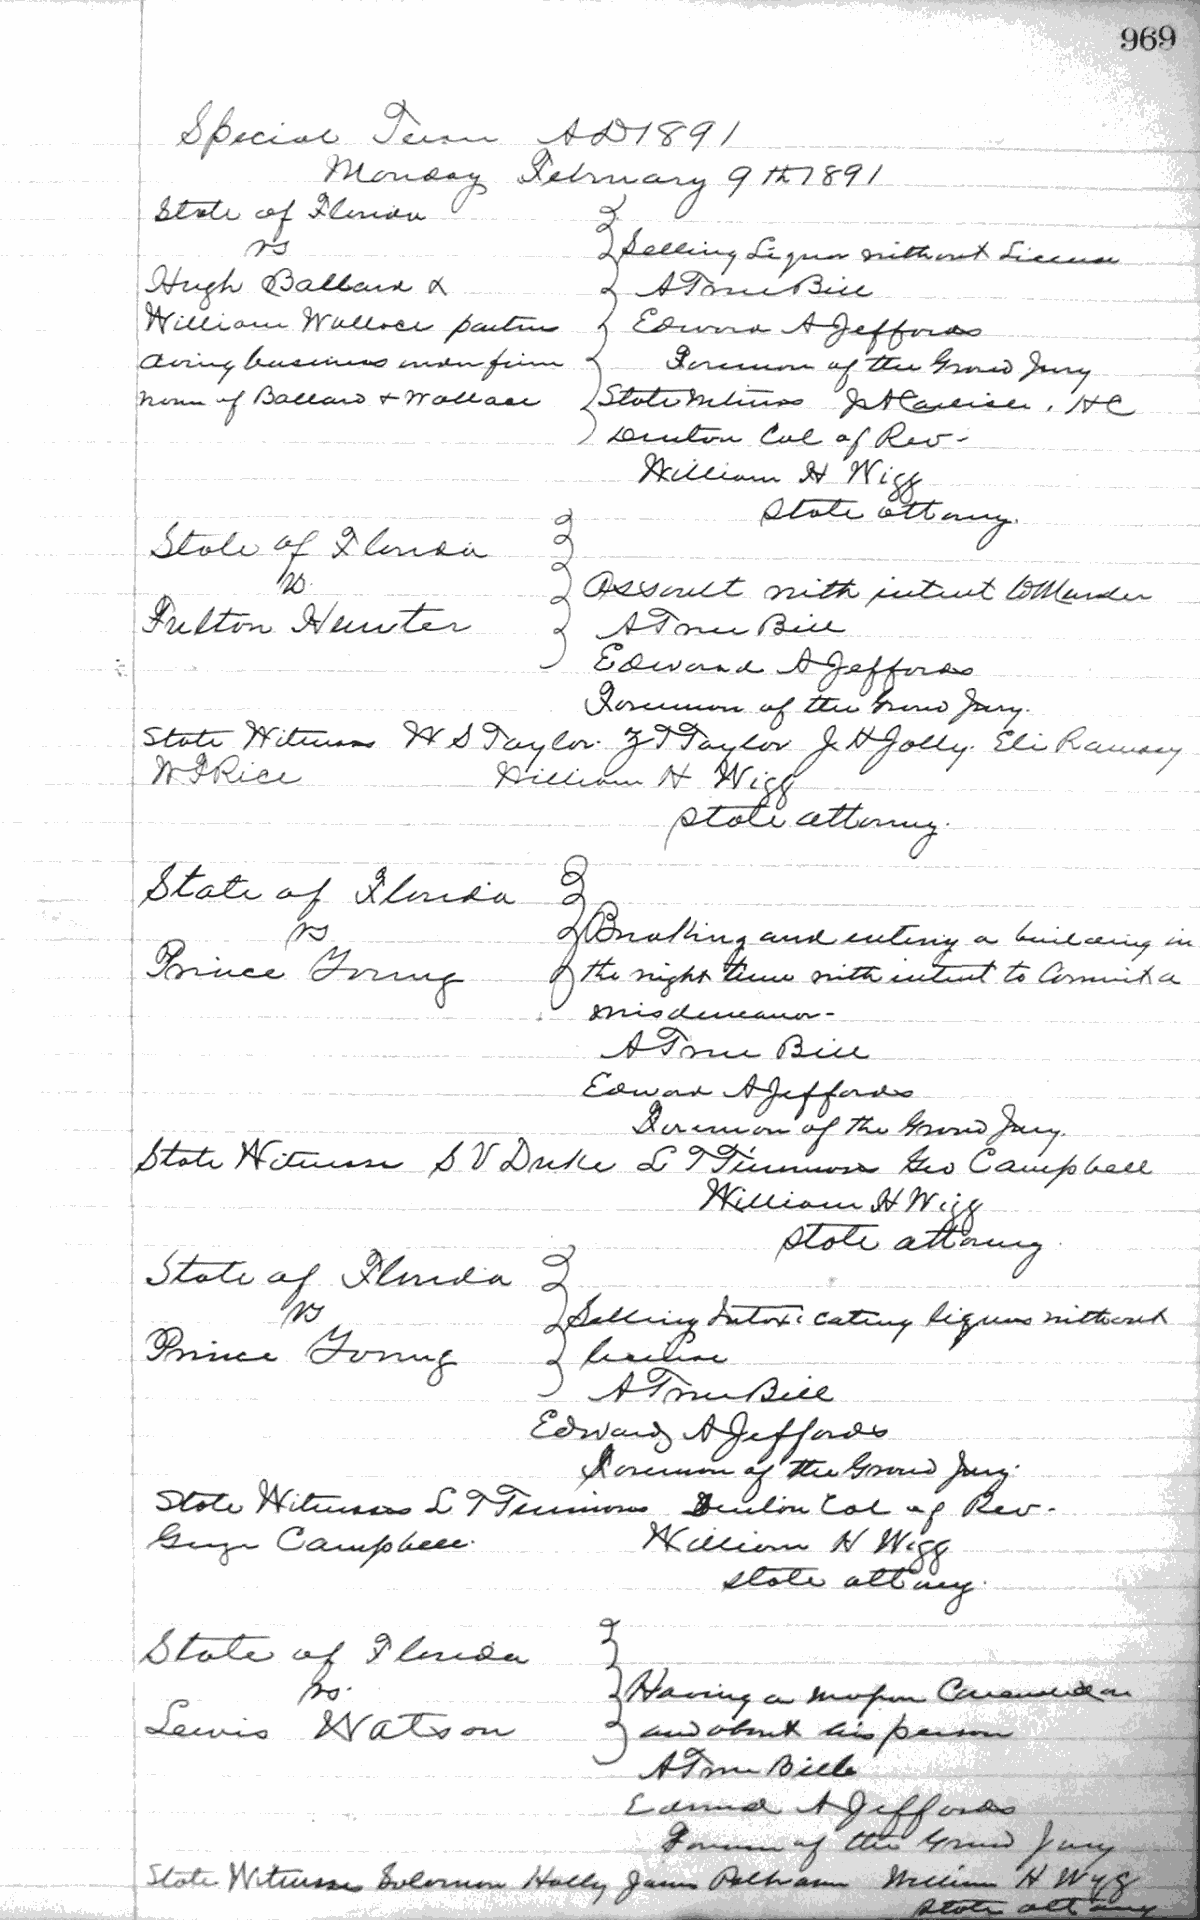 969
Special Term AD 1891
Monday February 9th 1891
State of Florida
vs
Hugh Ballard &
William Wallace partners
doing business under firm
name of Ballard & Wallace
Selling Liquor without License
A True Bill
Edward A Jeffords
Foreman of the Grand Jury
State Witness J A H C
Denton Col of Rev -
William H Wigg
State attorney.
State of Florida
vs.
Fulton Hunter
Assault with intent to Murder
A True Bill
Edward A Jeffords
Foreman of the Grand Jury.
State Witness W S Taylor. Z T Taylor J H Jolly. Eli Ramsey
W F Rice William H Wigg
State attorney.
State of Florida
vs
Prince Young
Breaking and entering a building in
the night time with intent to Commit a
misdemeanor -
A True Bill
Edward A Jeffords
Foreman of the Grand Jury.
State Witness S V Duke L T Timmons Geo Campbell
William H Wigg
State attorney.
State of Florida
vs
Prince Young
Selling Intoxicating liquors without
license
A True Bill
Edward A Jeffords
Foreman of the Grand Jury.
State Witnesses L T Timmons Denton Col of Rev -
George Campbell. William H Wigg
State attorney.
State of Florida
vs.
Lewis Watson
Having a weapon Concealed on
and about his person
A True Bill
Edward A Jeffords
Foreman of the Grand Jury
State Witness Solomon Holly James Pelham William H Wigg
State attorney